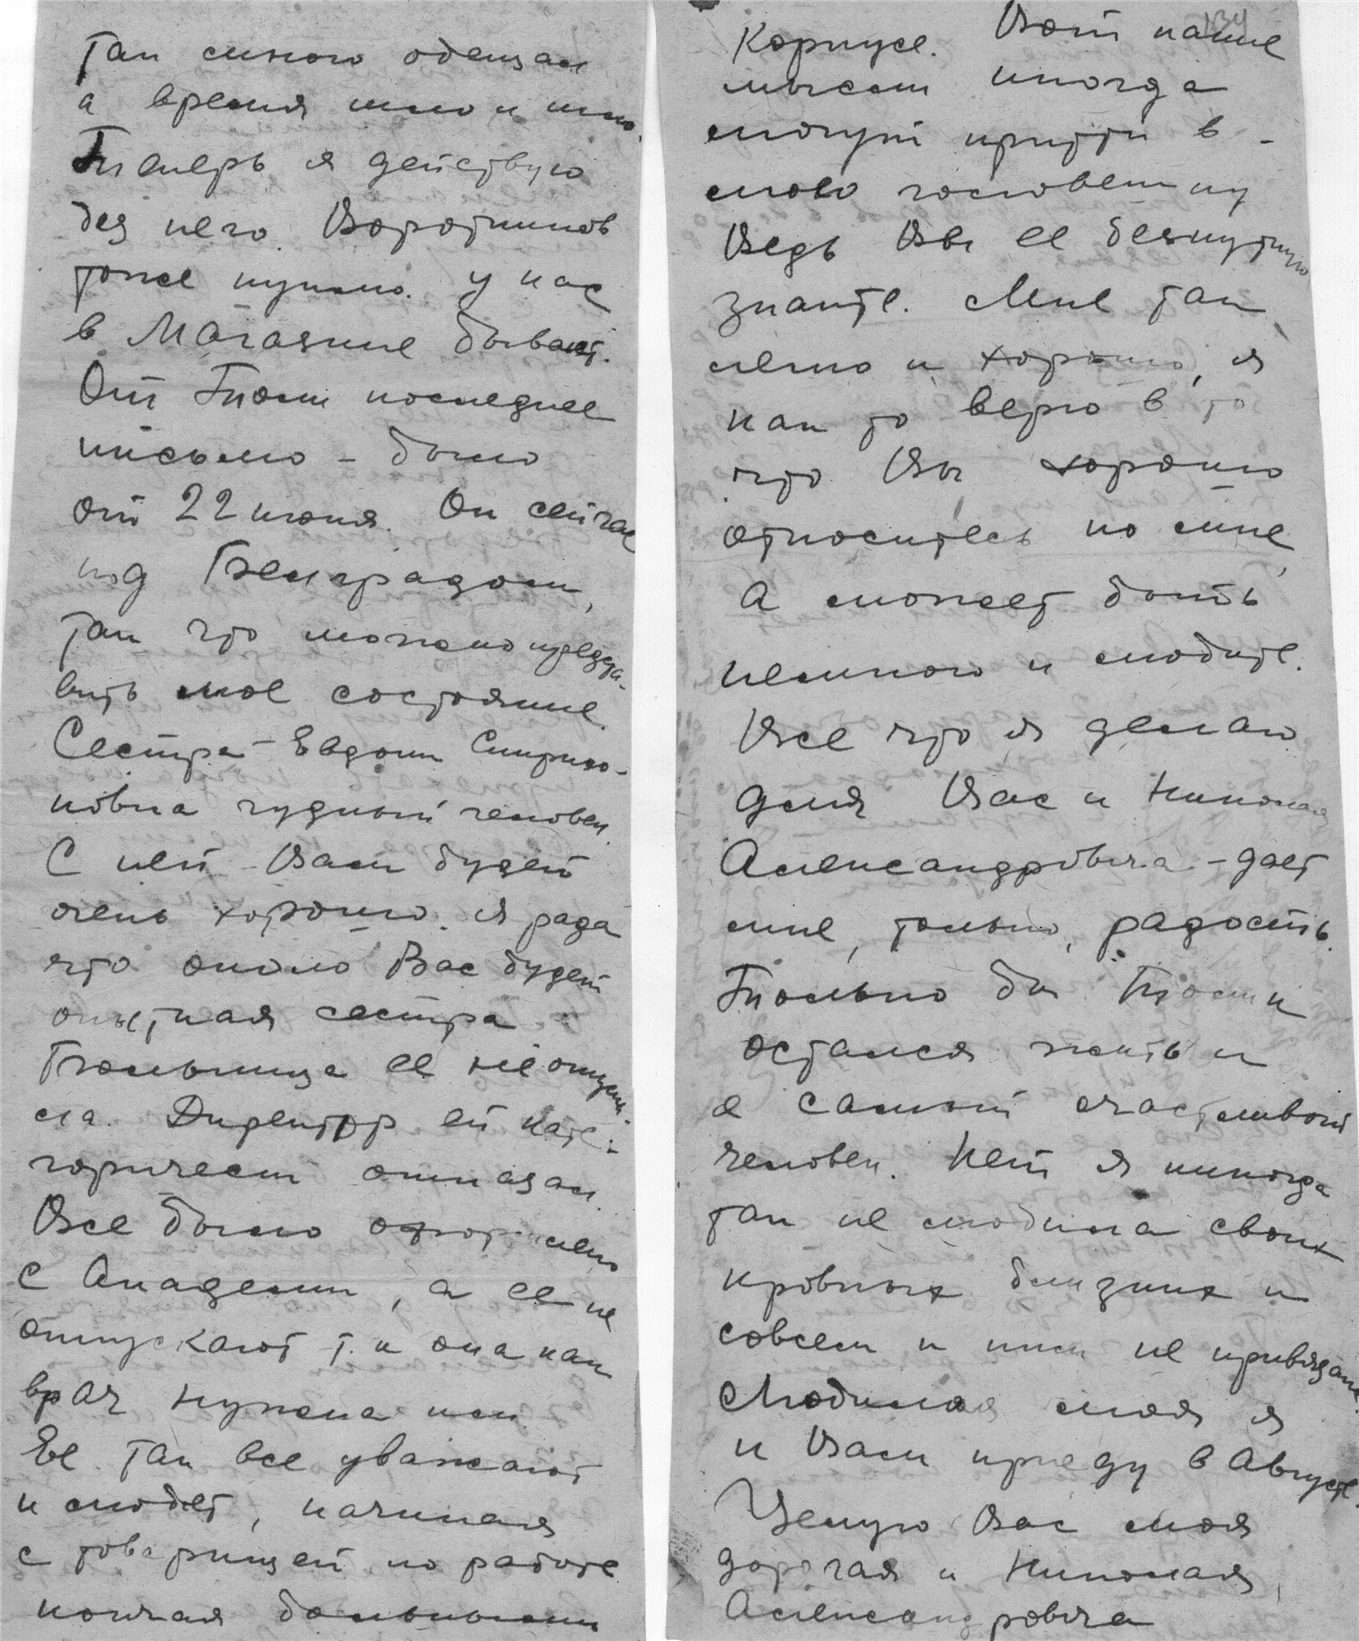 так много обещал
а время шло и шло.
Теперь я действую
без него. Воротников
тоже нужно. у нас
в Магазине бывает.
От Томи последнее
письмо – было
от 22 июня. Он сейчас
под Белградом,
так что можно предста-
вить мое состояние.
Сестра – Евдоки Спиридо-
новна чудный человек.
С ней Вам будет
очень хорошо. я рада
что около Вас будет
опытная сестра
Больница ее не отпусти
ла. Директор ей кате-
горически отказал
Все было оформлено
с Академии, а ее не
отпускают т. к она как
врач нужна им
Ее так все уважают
и любят, начиная
с товарищей по работе
кончая больными
134
Корпусе. Вот какие
мысли иногда
могут притти в –
мою головешку
Ведь Вы ее безпутную
знаите. Мне так
легко и хорошо, я
как то верю в то
что Вы хорошо
относитесь ко мне,
а может быть
немного и любите.
Все что я делаю
для Вас и Николая
Александровича – дает
мне, только, радость.
Только бы Томи
остался жить и
я самый счастливый
человек. Нет я никогда
так не любила своих
кровных близких и
совсем к ним не привязана.
Любимая моя я
к Вам приеду в Августе.
Целую Вас моя
дорогая и Николая,
Александровича